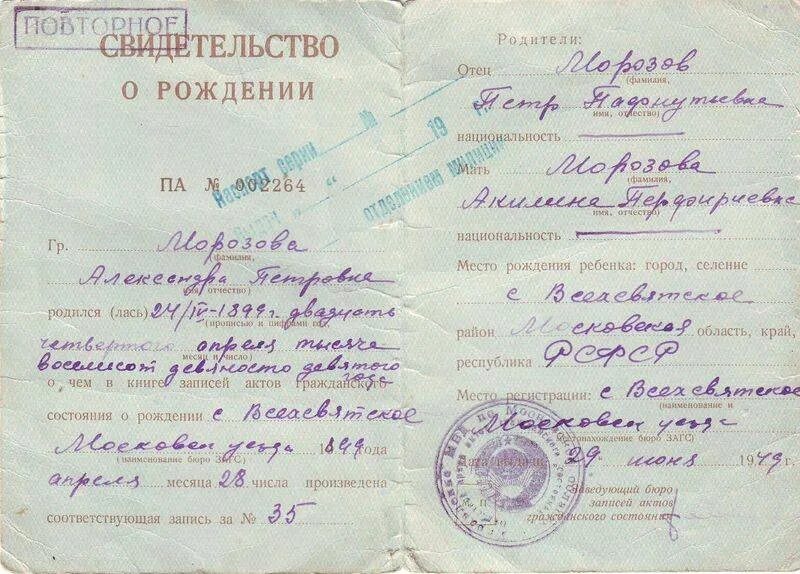 ПОВТОРНОЕ
СВИДЕТЕЛЬСТВО
О РОЖДЕНИИ
Паспорт серии № 
19 г.
отделением милиции
ПА № 002264
Гр. Морозова
(фамилия,
Александра Петровна
имя, отчество)
родился (лась) 24/IV-1899г. двадцать
(прописью и цифрами год,
четвертого апреля тысяча
месяц и число)
восемьсот девяносто девятого
года
о чем в книге записей актов гражданского
состояния о рождении с Всехсвятское
Московск уезда 1899 года
(наименование бюро ЗАГС)
апреля месяца 28 числа произведена
соответствующая запись за № 35
Родители:
Отец Морозов
(фамилия,
Петр
имя, отчество)
национальность
Мать Морозова
(фамилия,
Акилина
имя, отчество)
национальность
Место рождения ребенка: город, селение
с Всехсвятское
район Московская область, край,
республика РСФСР
Место регистрации: с Всехсвятское
(наименование и
Московск уезда
местонахождение бюро ЗАГС)
Дата выдачи 29 июня 1949 г.
Заведующий бюро
записей актов
гражданского состояния